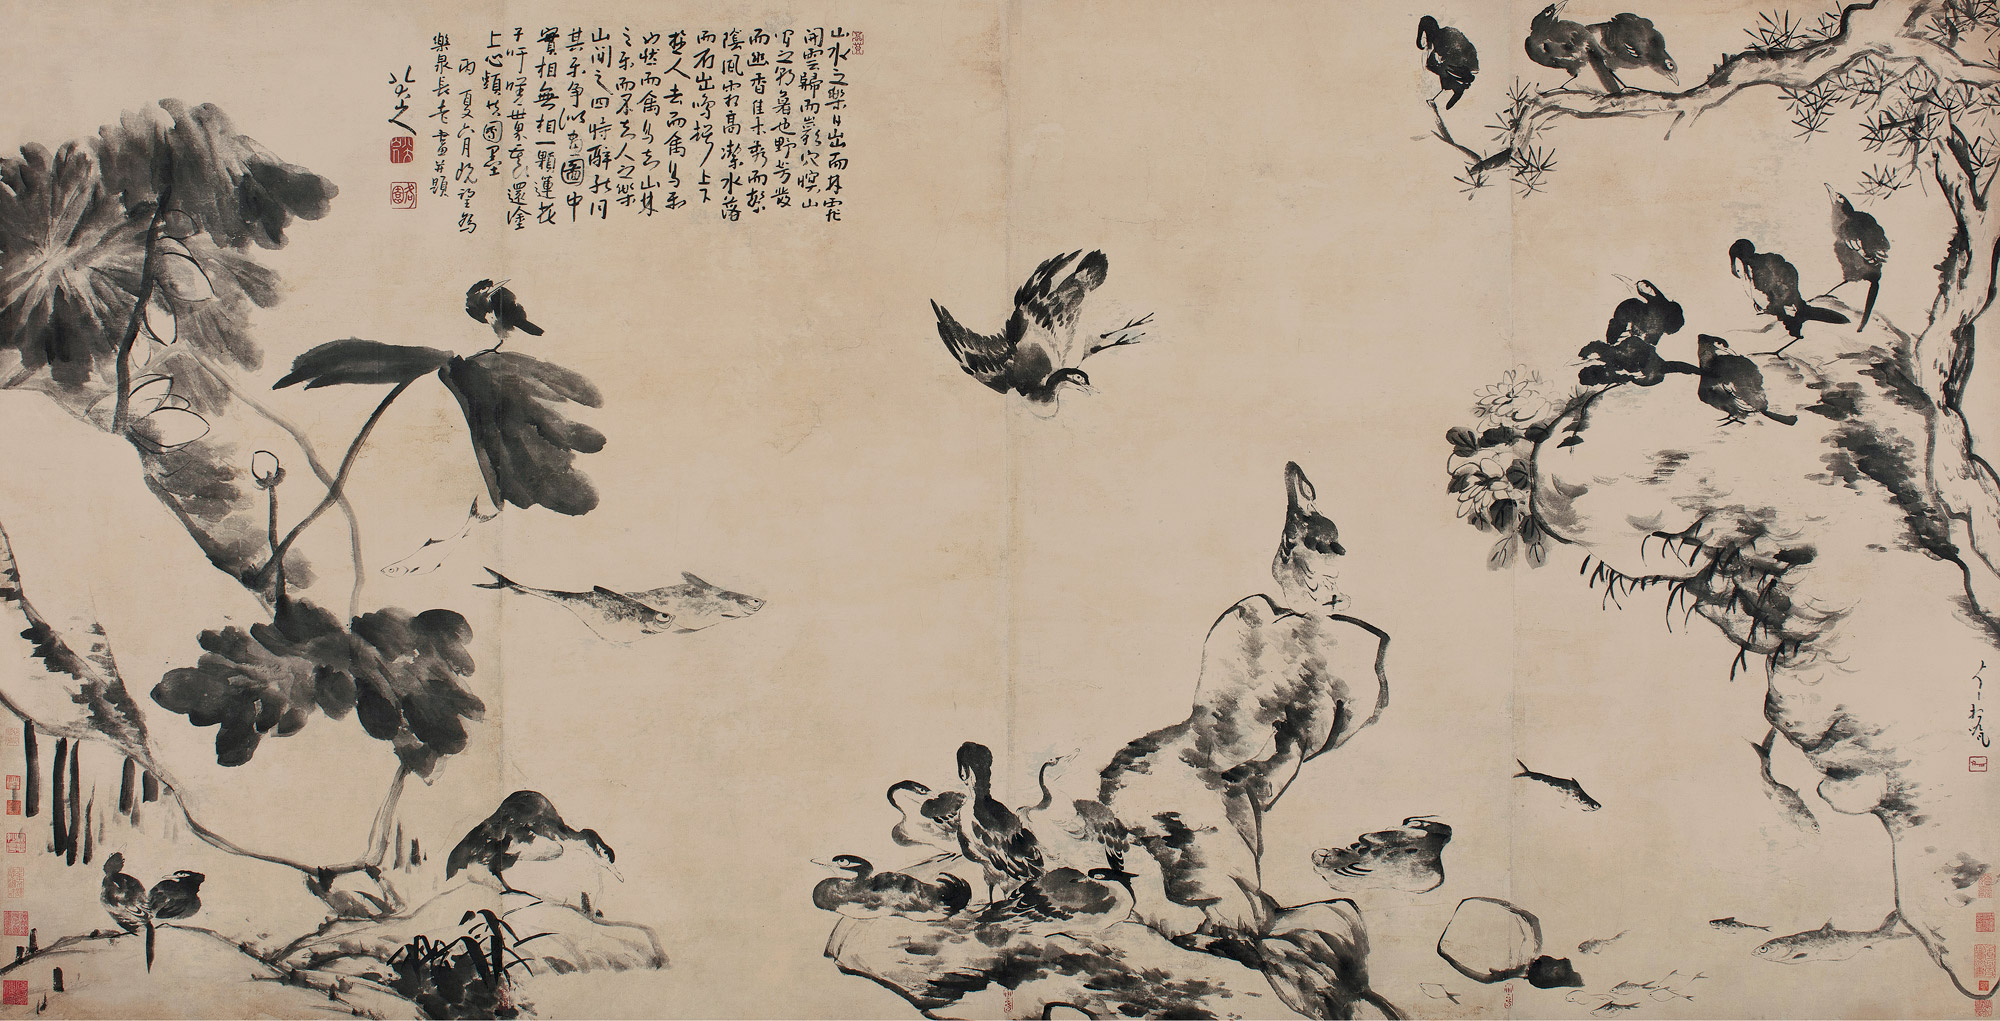 山水之樂日出而林霏
開雲歸而巖穴暝山
間之朝暮也野芳發
而幽香佳木秀而繁
陰風霜高潔水落
而石出鳴聲上下
遊人去而禽鳥樂
也然而禽鳥知山林
之樂而不知人之樂
山間之四時醉能同
其樂爭似畫圖中
實相無相一顆蓮花
子吁嗟世界還塗
上心頭共圖墨
丙夏六月既望為
樂泉長老畫并題
八大山人